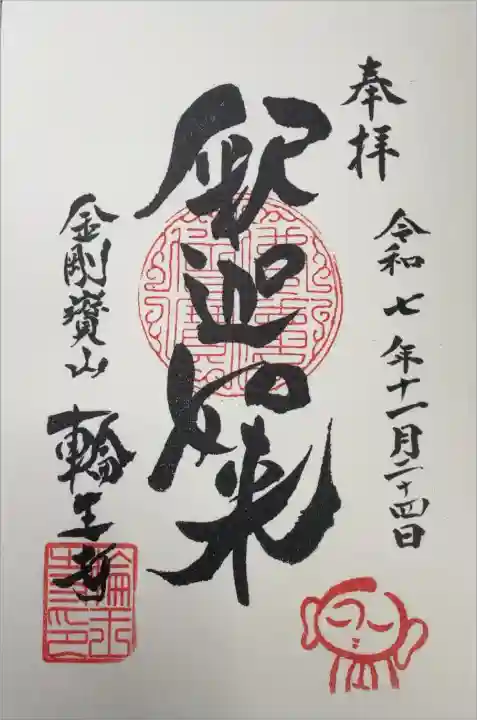 奉拝
令和七年十一月二十四日
釈迦如来
金剛寳山
輪王寺
輪王寺印